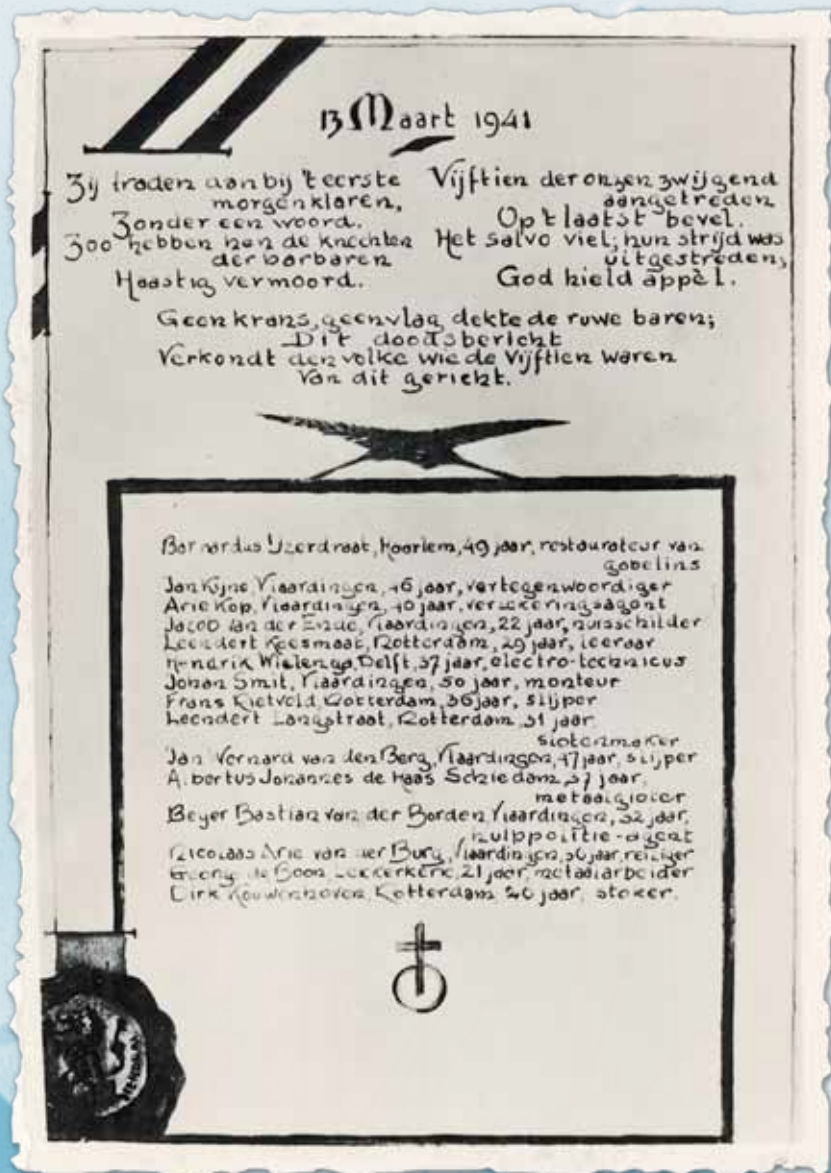 13 Maart 1941
Zij traden aan bij 't eerste
morgenklaren,
Zonder een woord.
Zoo hebben hen de knechten
der barbaren
Haastig vermoord.
Vijftien der onzen zwijgend
aangetreden
Op 't laatst bevel.
Het salvo viel; hun strijd was
uitgestreden,
God hield appèl.
Geen krans, geen vlag dekte de ruwe baren;
Dit doodsbericht
Verkondt den volke wie de Vijftien waren
Van dit gericht.
Bernardus IJzerdraat, Haarlem, 49 jaar, restaurateur van
gobelins
Jan Kijne, Vlaardingen, 46 jaar, vertegenwoordiger
Arie Kop, Vlaardingen, 40 jaar, verzekeringsagent
Jacob van der Ende, Vlaardingen, 22 jaar, huisschilder
Leendert Keesmaat, Rotterdam, 29 jaar, leeraar
Hendrik Wielenga, Delft, 37 jaar, electro-technicus
Johan Smit, Vlaardingen, 50 jaar, monteur
Frans Rietveld, Rotterdam, 36 jaar, slijper
Leendert Langstraat, Rotterdam, 31 jaar
slotenmaker
Jan Wernard van den Berg, Vlaardingen, 47 jaar, slijper
Albertus Johannes de Haas Schiedam, 37 jaar,
metaalgieter
Reyer Bastian van der Borden Vlaardingen, 32 jaar,
hulppolitie-agent
Nicolaas Arie van der Burg, Vlaardingen, 36 jaar, reiziger
George de Boon Lekkerkerk, 21 jaar, metaalarbeider
Dirk Kouwenhoven, Rotterdam 24 jaar, stoker.